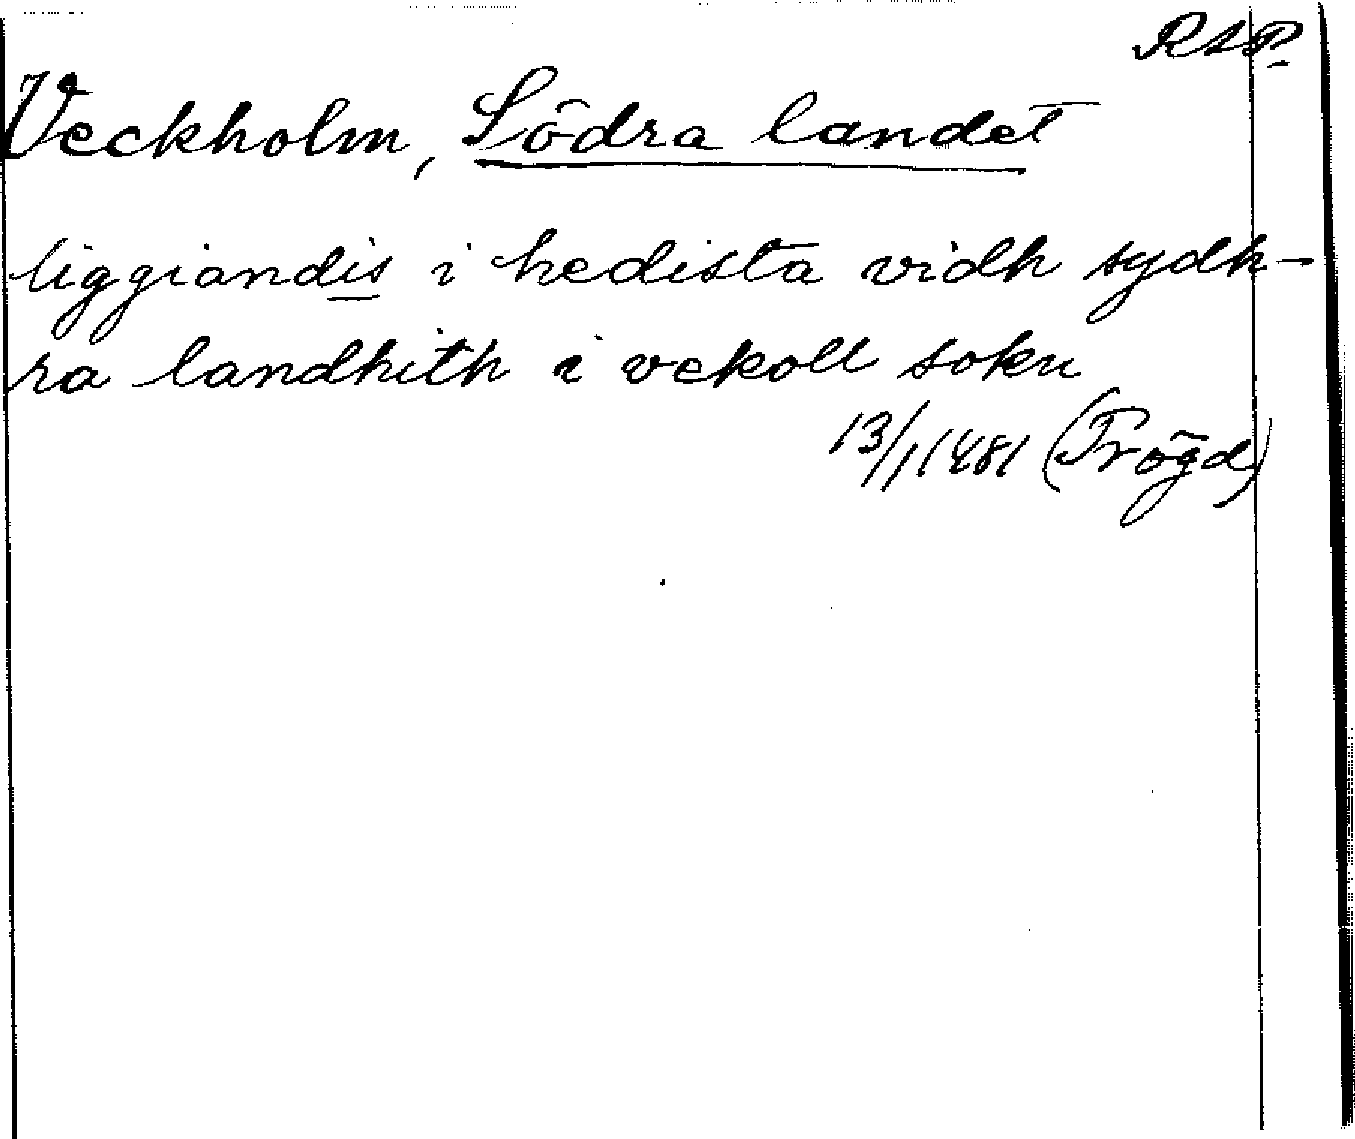 RAP.
Veckholm, Södra landet
liggiandis i hedista vidh sydh-
ra landhith i vekoll sokn
13/1 1481 (Trögd)